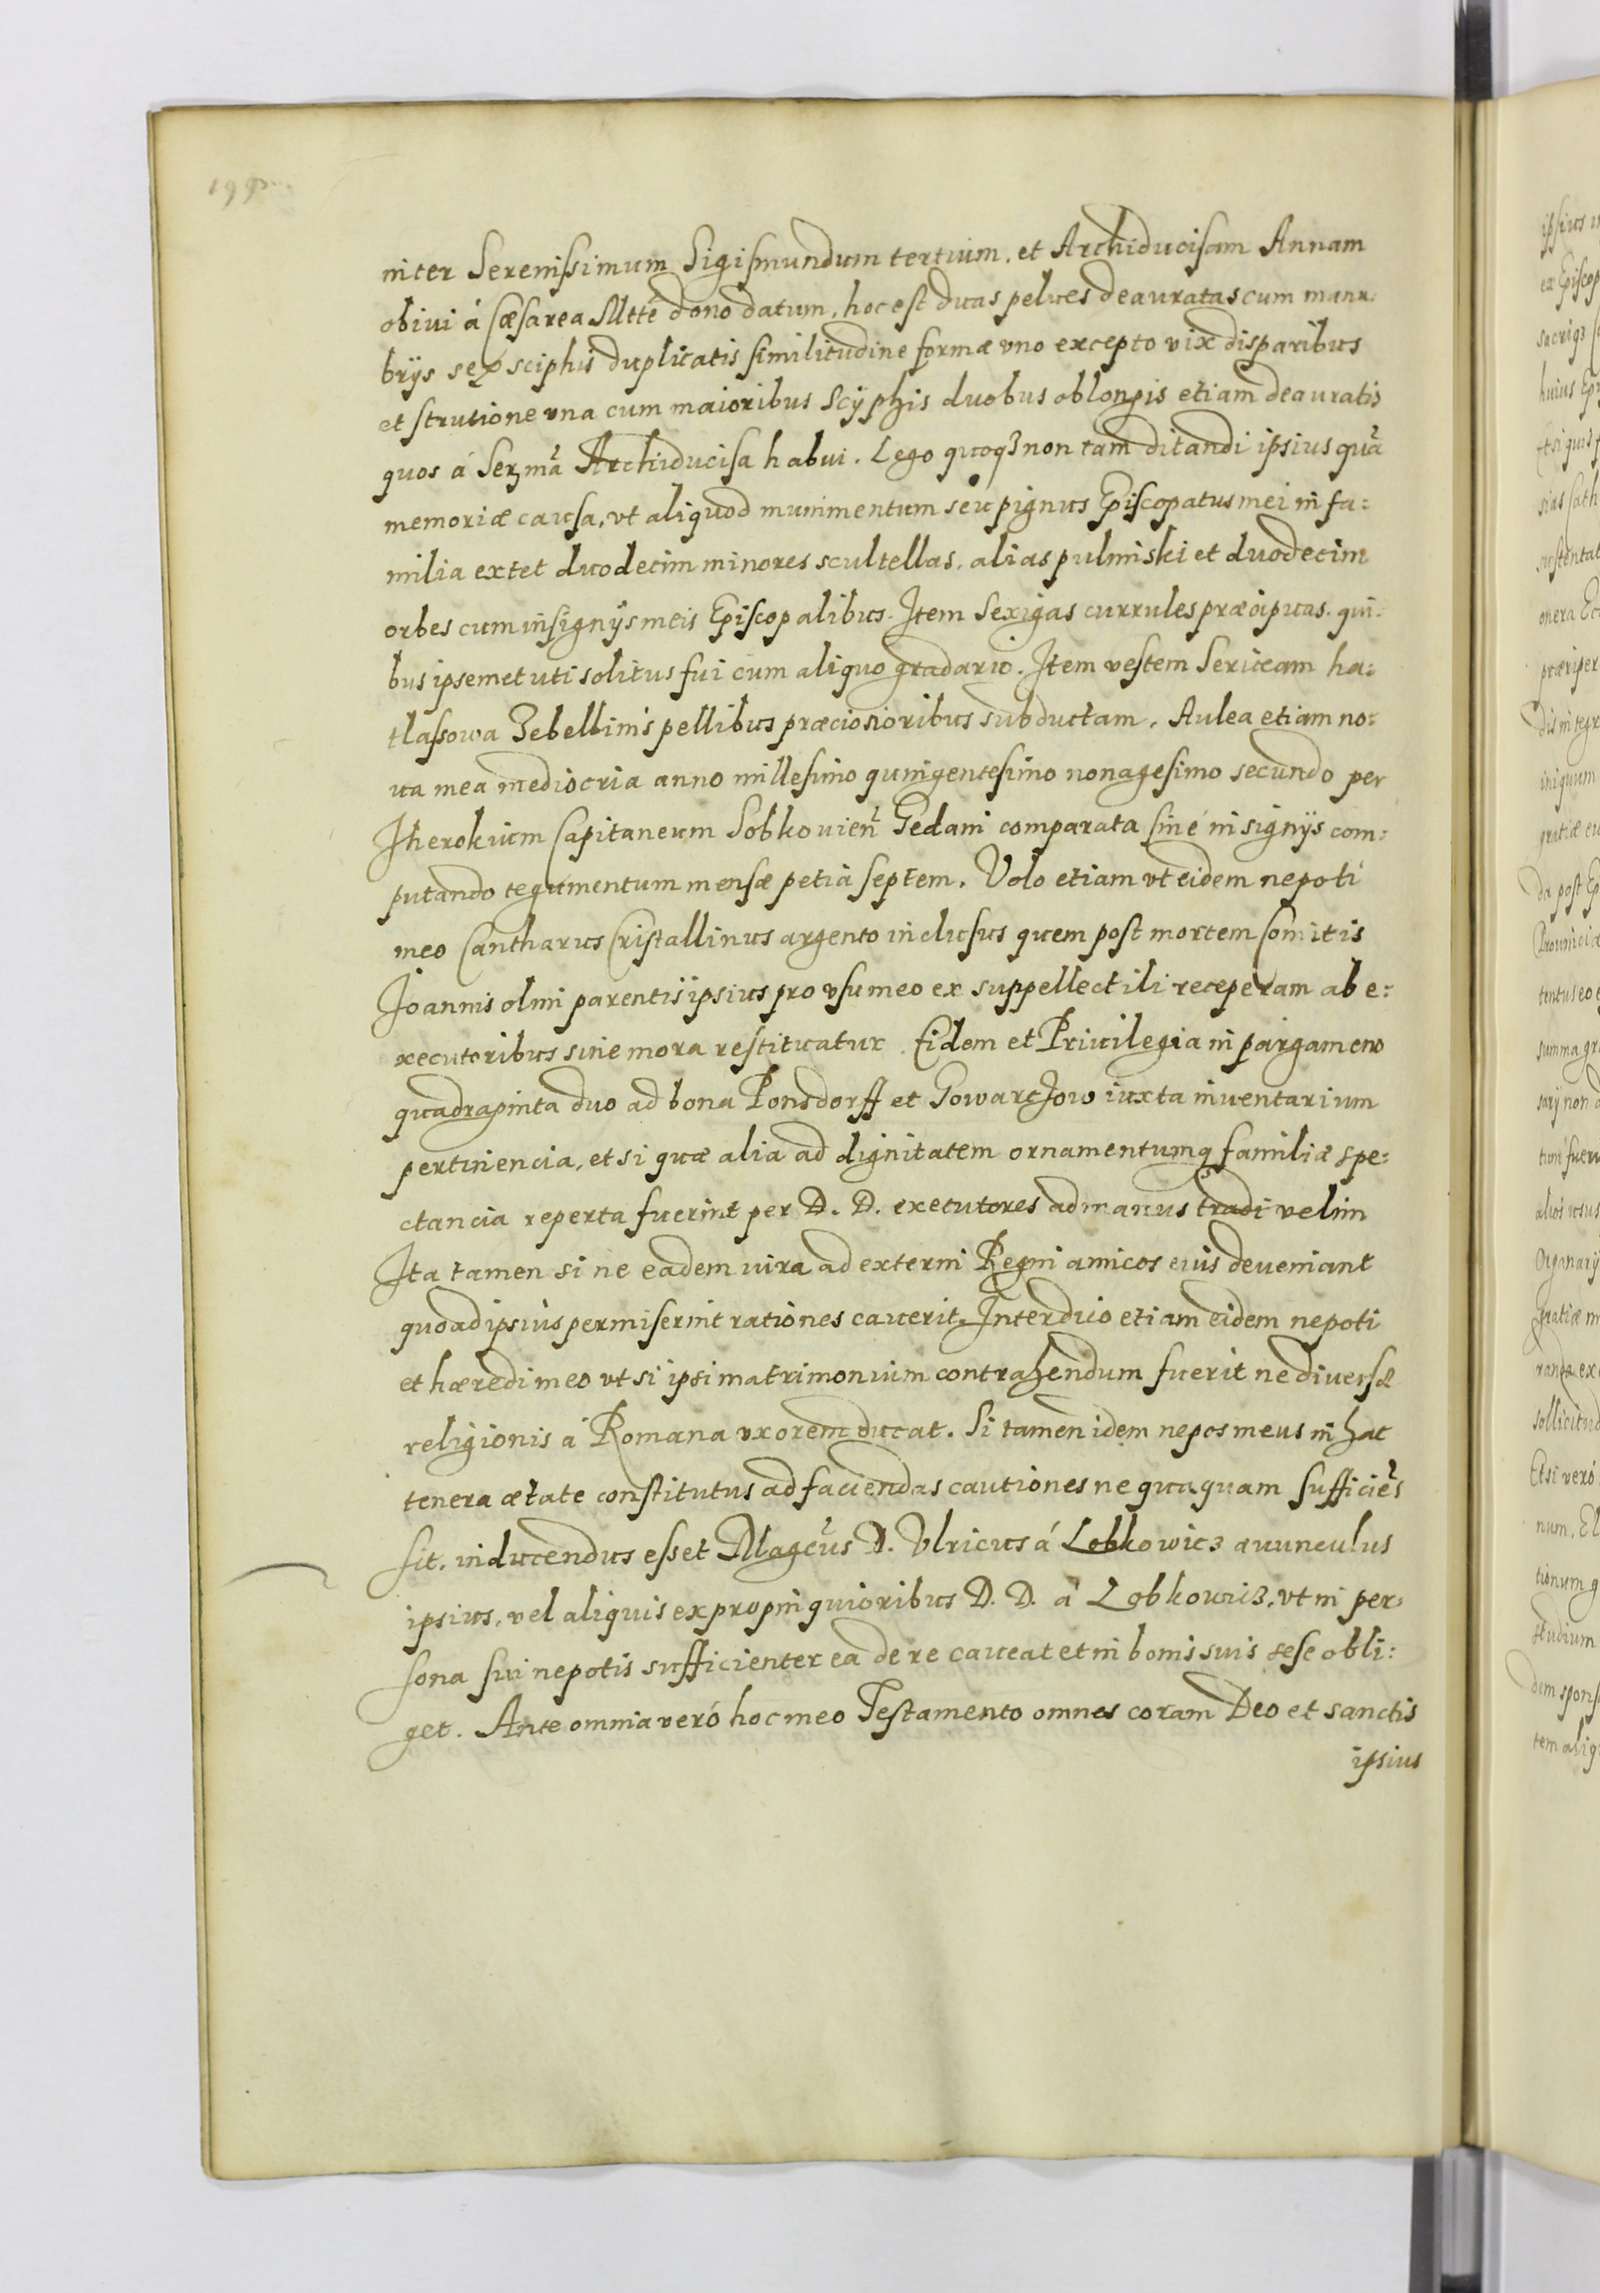 inter Serenissimum Sigismundum tertium, et Archiducisam Annam
obivi á Cæsarea Mtte dono datum, hoc est duas pelues deauratas cum manu-
brijs sex sciphis duplicatis similitudine formæ vno excepto vix disparibus
et strutione vna cum maioribus Scyphis duobus oblongis etiam deauratis
quos á Serma Archiducisa habui. Lego quoq3 non tam ditandi ipsius quã
memoriæ causa, vt aliquod munimentum seu pignus Episcopatus mei in fa:
milia extet duodecim minores scultellas, alias pulmiski et duodecim
orbes cum insignijs meis Episcopalibus. Item Sexigas currules præcipuas. qui-
bus ipsemet uti solitus fui cum aliquo gradario. Item vestem Sericeam ha:
tlassowa Zebellinis pellibus præciosioribus subductam. Aulea etiam no:
ua mea mediocria anno millesimo quingentesimo nonagesimo secundo per
Capitaneum Sobkouien Gedani comparata sine insignijs com:
putando tegumentum mensæ petia septem. Volo etiam vt eidem nepoti
meo Cantharus Cristallinus argento inclusus quem post mortem Comitis
Joannis olim parentis ipsius pro vsu meo ex suppellectili receperam ab e:
xecutoribus sine mora restituatur. Eidem et Priuilegia in pargameno
quadraginta duo ad bona Ponsdorff et iuxta inuentarium
pertinencia, et si quæ alia ad dignitatem ornamentumq familiæ spe:
ctancia reperta fuerint per D. D. executores ad manus tradi velim
Ita tamen si ne eadem iura ad externi Regni amicos eius deveniant
quoad ipsius permiserint rationes cauerit. Interdico etiam eidem nepoti
et hæredi meo vt si ipsi matrimonium contrahendum fuerit ne diversæ
religionis á Romana vxorem ducat. Si tamen idem nepos meus in hac
tenera ætate constitutus ad faciendas cautiones ne quaquam sufficiẽs
sit, inducendus esset Magcus D. Vlricus á Lobkowicz avunculus
ipsius, vel aliquis ex propinquioribus D. D. á Lobkouicz, vt in per-
sona sui nepotis sufficienter ea de re caueat et in bonis suis sese obli:
get. Ante omnia veró hoc meo Testamento omnes coram Deo et sanctis
ipsius